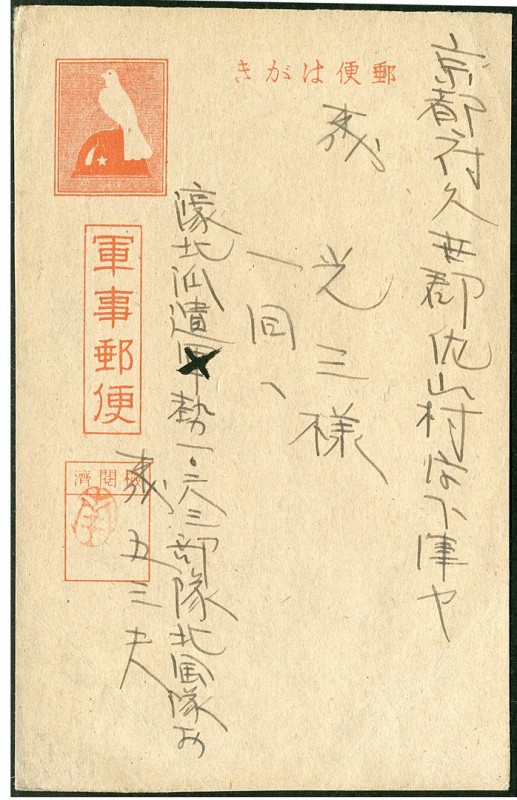 郵便はがき
京都府久世郡佐山村字下津ヤ
光三様
一同へ
濠北派遣軍勢一〇六三部隊北風隊
五三夫
軍事郵便
検閲済